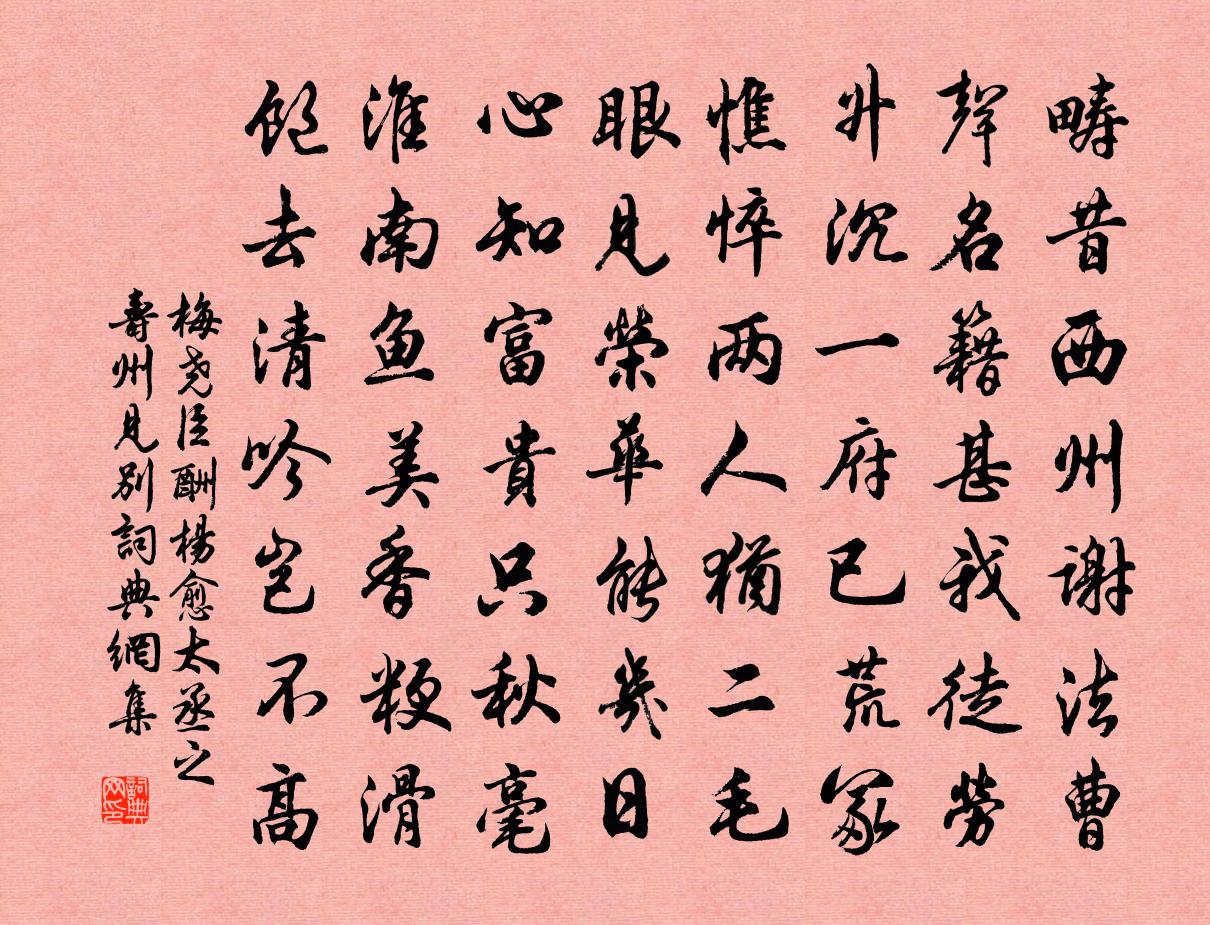 畴昔西州谢法曹
聲名籍甚我徒勞
升沉一府已荒冢
憔悴两人猶二毛
眼見榮華能幾日
心知富貴只秋毫
淮南鱼美香粳滑
飽去清吟豈不高
梅尧臣酬楊愈太丞之
壽州見别詞典網集
詞典网印